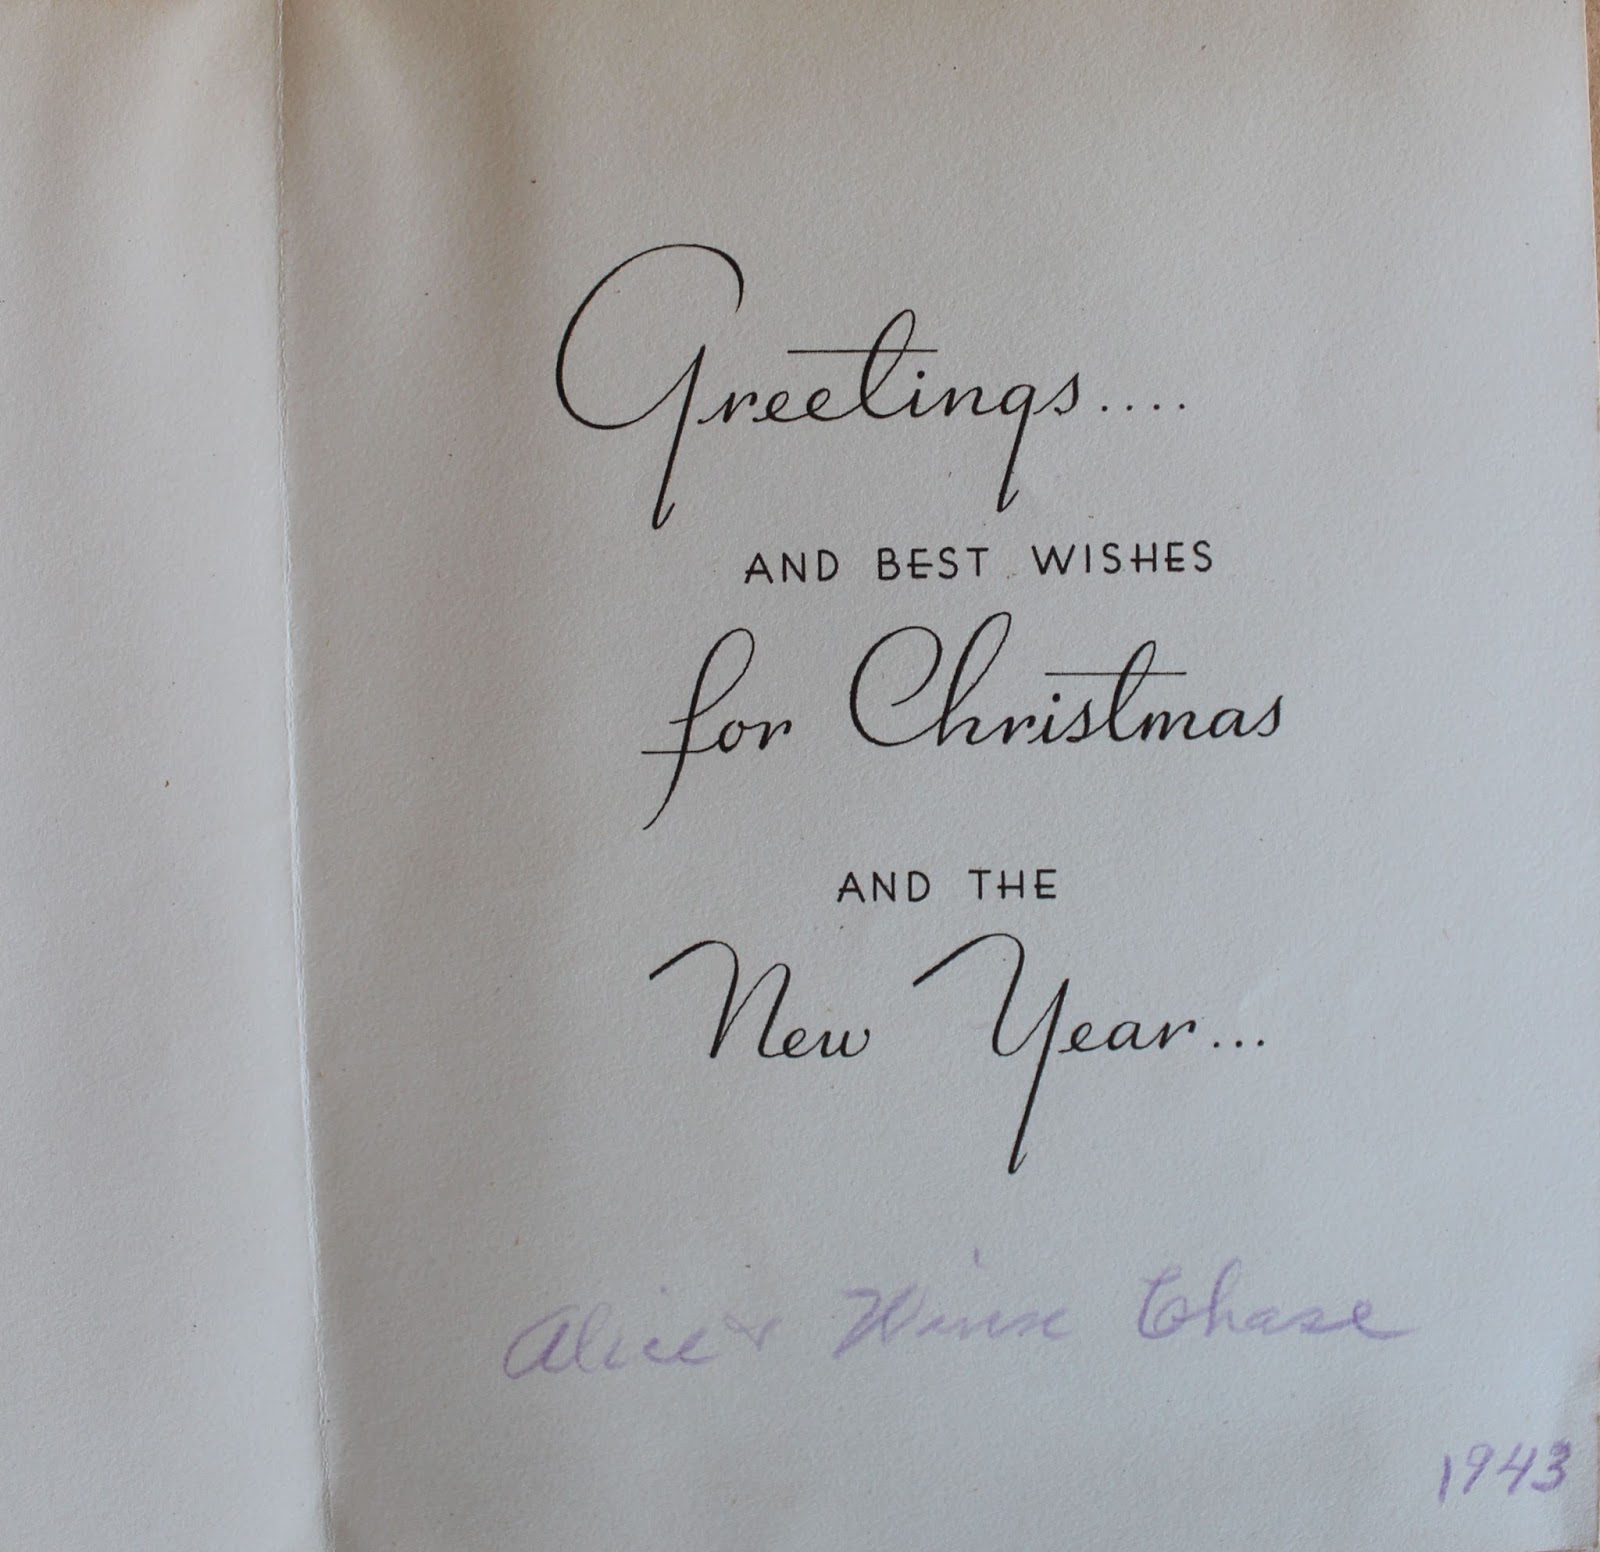 Greetings....
AND BEST WISHES
for Christmas
AND THE
New Year...
Alice & Chase
1943